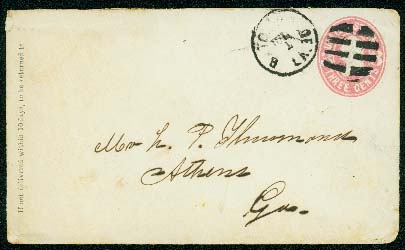 If not delivered within 10 days, to be returned to
THREE CEN
Mr L. P. Thurmond
Athens
Ga.